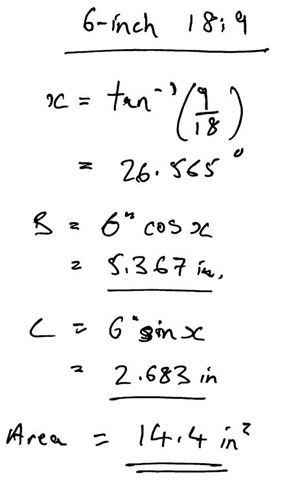 6-inch 18:9
x = tan⁻¹(9/18)
= 26.565°
B = 6" cos x
= 5.367 in.
C = 6" sin x
= 2.683 in
Area = 14.4 in²